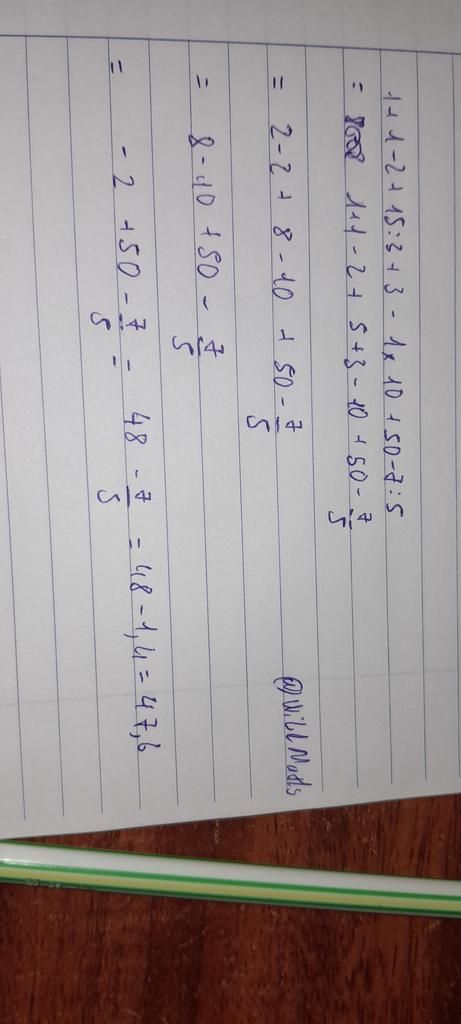 1+1-2+15:3+3-1×10+50-7:5
= 1+1-2+5+3-10+50-7/5
= 2-2+8-10+50-7/5
@Wild Maths
= 8-10+50-7/5
= -2+50-7/5 = 48-7/5 = 48-1,4=47,6